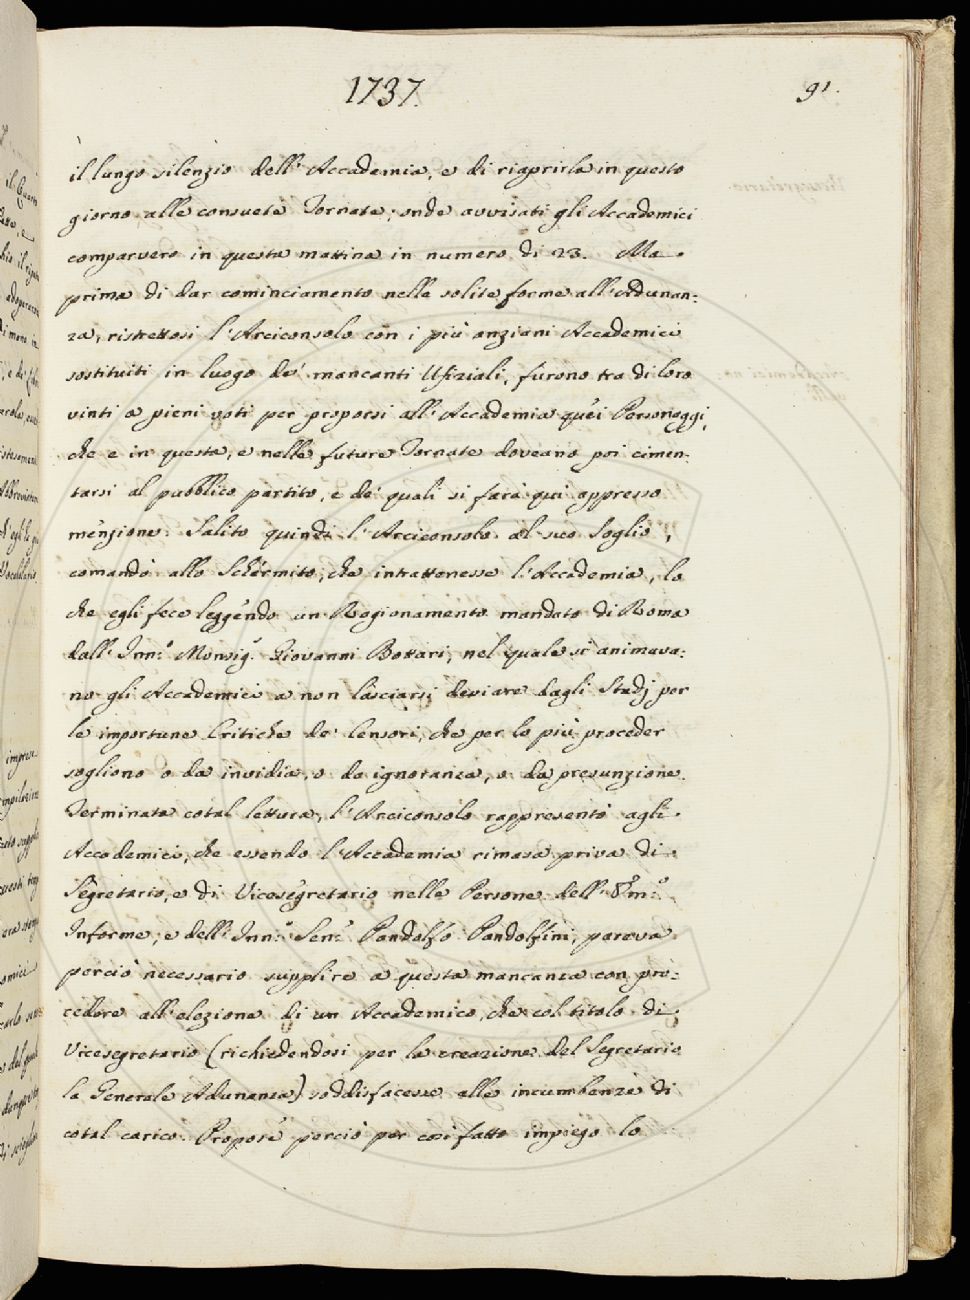 1737.
91.
il lungo silenzio dell'Accademia, e di riaprirla in questo
giorno alle consuete Tornate; onde avvisati gli Accademici
comparvero in questa mattina in numero di 23. Ma
prima di dar cominciamento nelle solite forme all'Adunan-
za, ristrettosi l'Arciconsolo con i più anziani Accademici
sostituiti in luogo de' mancanti Ufiziali, furono tra di loro
vinti a pieni voti per proporsi all'Accademia quei Personaggi,
che e in questa, e nelle future Tornate doveano poi cimen-
tarsi al pubblico partito, e de' quali si farà qui appresso
menzione. Salito quindi l'Arciconsolo al suo Soglio,
comandò allo Schermito, che intrattenesse l'Accademia, lo
che egli fece leggendo un Ragionamento mandato di Roma
dall'Inn.º Monsig.r Giovanni Bottari, nel quale si animava-
no gli Accademici a non lasciarsi deviare dagli Studj per
le importune Critiche de' Censori, che per lo più proceder
sogliono o da invidia, o da ignoranza, o da presunzione.
Terminata cotal lettura, l'Arciconsolo rappresentò agli
Accademici, che essendo l'Accademia rimasa priva di
Segretario, e di Vicesegretario nelle Persone dell'
Informe, e dell'Inn.º Sen.e Pandolfo Pandolfini, pareva
perciò necessario supplire a questa mancanza con pro-
cedere all'elezione di un Accademico, che col titolo di
Vicesegretario (richiedendosi per la creazione del Segretario
la Generale Adunanza) soddisfacesse alle incumbenze di
cotal carico. Propose perciò per così fatto impiego lo